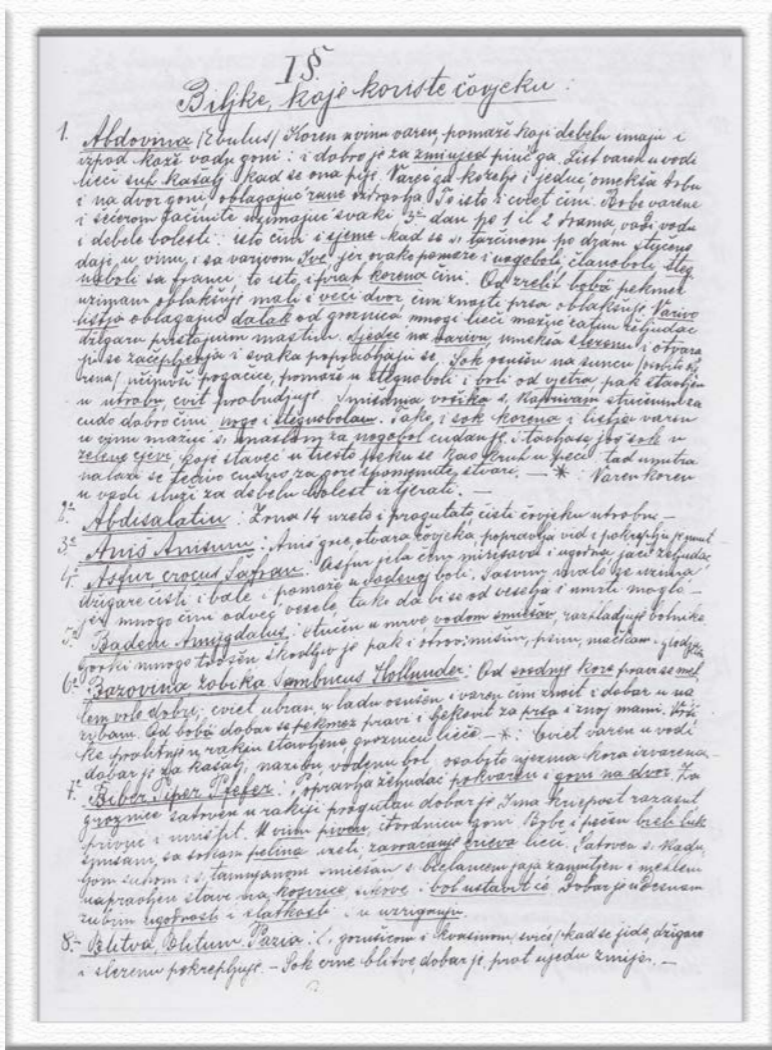 I §.
Biljke, koje koriste čovjeku:
1. Abdovina /Ebulus/ Koren u vinu varen, pomaže koji debelu imaju i
izpod kože vodu goni: i dobro je za zmiujed piuć ga. List varen u vodi
lieči suh kašalj kad se ona pije. Vareć ga kozelje i jeduć omekša trbu
i na dvor goni, oblagajuć rane ozdravlja To isto i cviet čini. Bobe varene
i šećerom začinite uzimajuć svaki 3ći dan po 1 il 2 drama, vadi vodu
i debele bolesti: isto čini i sjeme kad se s tarčinom po dram stučeno
daji, u vinu, i sa varivom Sve jer svako pomaže i nogoboli, članoboli, steg
noboli sa franci, to isto i prah korena čini. Od zrelih boba pekmez
uziman oblakšuje mali i veći dvor, čini znojti prsa oblakšuje Varivo
listja oblagajuć dalak od groznica mnogi lieči mažuć zatim željudac
džigaru pristojnim mastim. Sjedeć na varivu, umekša slezenu i otvara
ji se začepljenja i svaka popravljaju se. Sok osušen na suncu
učinivši pogačice, pomaže u stegnoboli i boli od vjetra, pak stavljen
u utrobu, cvit probudjuje. Smišana voćika s. koprivam stučenim za
čudo dobro čini nogo i stegnobolam. Tako i sok korena i listja varen
u vinu mažuć s. maslom za nogobol čudan je, i tačnose još sok u
zelene cjevi koje staveć u tiesto peku se kao kruh u peći tad unutra
nalazi se tečivo čudno za gore spomenute stvari. — * : Varen koren
u vodi služi za debelu bolest iztjerati. —
2. Abdisalatin: Zrna 14 uzeto i progutato čisti čovjeku utrobu —
3. Aniš Anisum: Aniš grie, otvara čovjeka, popravlja vid i pokrepljuje
4. Asfur crocus Šafran: Asfur jela čini mirisava i ugodna, jači željudac
džigare čisti i bole i pomaže u vodenoj boli. Sasvim malo se uzima
jer mnogo čini odveć vesele, tako da bi se od veselja i umrti moglo —
5. Badem Amygdalus: stučen u mrve vodom smiešan, razhladjuje bolnike
gorki mnogo trošen škodljiv je pak i otrov mišim, psim, mačkam.
6. Bazovina zobika Sambucus Hollunder: Od srednje kore pravi se mel
lem vrlo dobri; cviet ubran, u ladu osušen i varen čini znoit i dobar u na
zebam. Od boba dobar se pekmez pravi i ljekovit za prsa i znoj mami.
ke prolitnje u rakiju stavljene groznicu lieče. — * : Cviet varen u vodi
dobar je za kašalj, nazibu, vodenu bol, osobito njezina kora izvarena —
7. Biber Piper Pfefer: Popravlja željudac pokvaren i goni na dvor. Za
groznice satoven u rakiji progutan dobar je. Ima kriepost razasut
privne i umiriti. U vinu piven, itvrdnicu goni. Bobe i pečen bieli luk
smiešan, sa sokom pelina uzeti, zavraćanje crieva lieči. Satoven s. kadu
ljom suhom i s. tamnjanom smiešan s bielancem jaja zamutjen i mehlem
napravljen stave na kosurice, sikove i bol ustavit će. Dobar je u desnim
zubim ugodnosti i slatkosti i u uzriganju.
8. Blitva, Blitum Pazia: S. gorušicom i kvasinom /sirće/ kad se jide, džigare
i slezenu pokrepljuje. — Sok crne blitve, dobar je, prot ujedu zmije. —